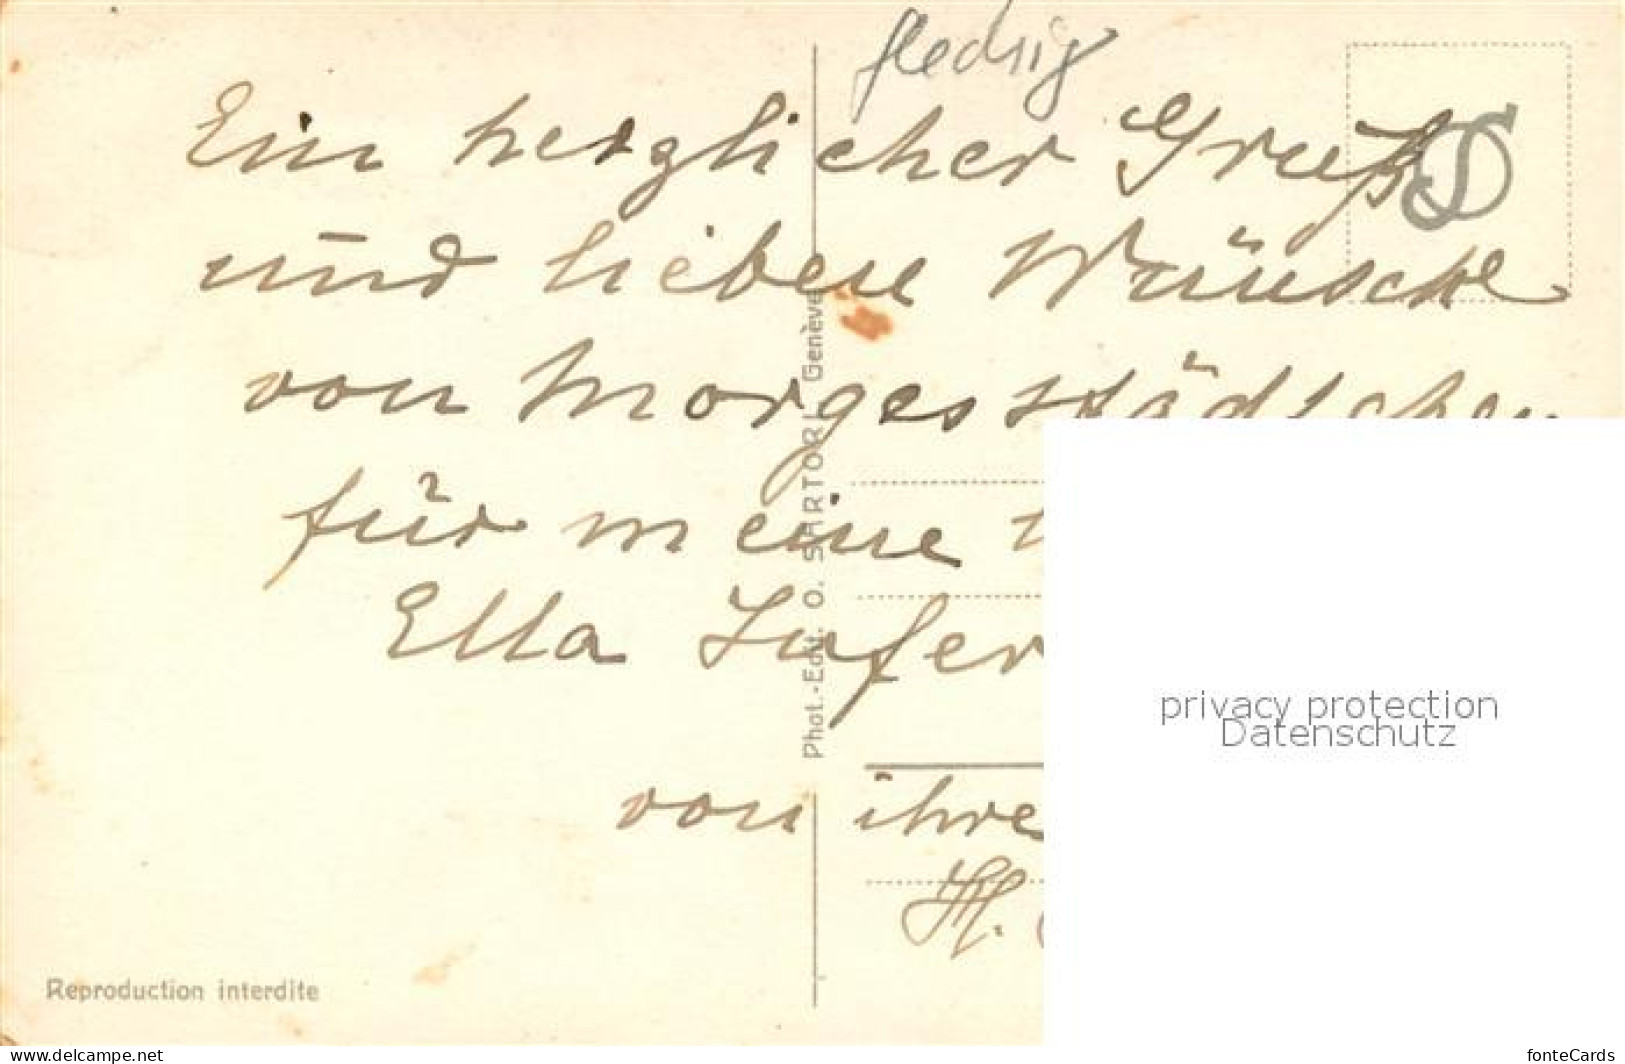 fledrig
Ein herzlicher Gruß
und lieben Wünsche
von Morges städtchen
für meine
Ella Lufer
von ihre
H.
Phot.-Edit. O. SARTORI, Genève
Reproduction interdite
privacy protection
Datenschutz
www.delcampe.net
fonteCards